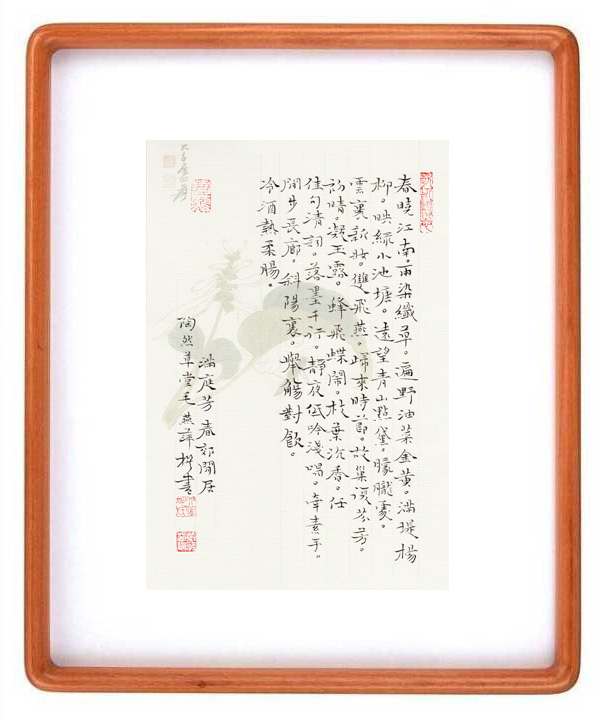 春曉江南。雨染纖草。遍野油菜金黃。滿堤楊
柳。映綠小池塘。遠望青山點黛。朦朧霎。
雲裏新妝。雙飛燕。歸來時節。故巢溟芬芳。
初晴。凝玉露。蜂飛蝶鬧。枝葉沁香。任
佳句清詞。落墨千行。靜夜低吟淺唱。牽素手。
閒步長廊。斜陽裏。舉觴對飲。
冷酒熱柔腸。
滿庭芳春郊閒居
陶然草堂毛燕萍撰書